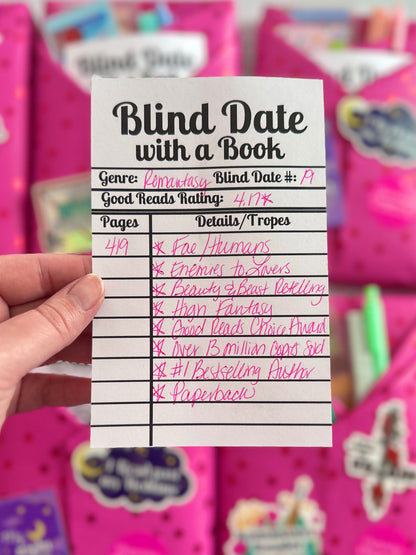 Blind Date
with a Book
Genre: Romantasy Blind Date #: 19
Good Reads Rating: 4.17*
Pages Details/Tropes
419 * Fae/Humans
* Enemies to Lovers
* Beauty & Beast Retelling
* High Fantasy
* Good Reads Choice Award
* Over 13 million copies sold
* #1 Bestselling Author
* Paperback